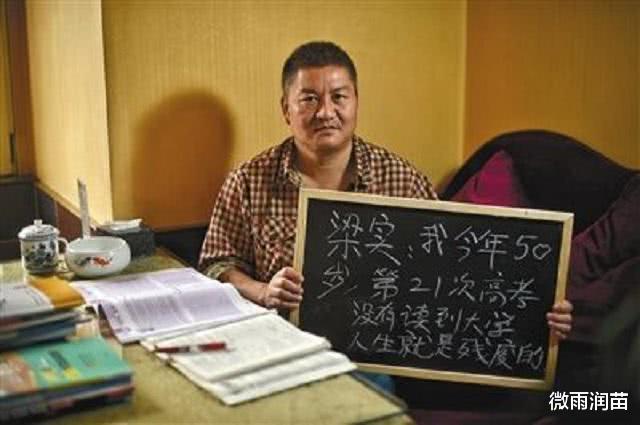 梁实：我今年50
岁，第21次高考
没有读到大学
人生就是残废的
微雨润苗